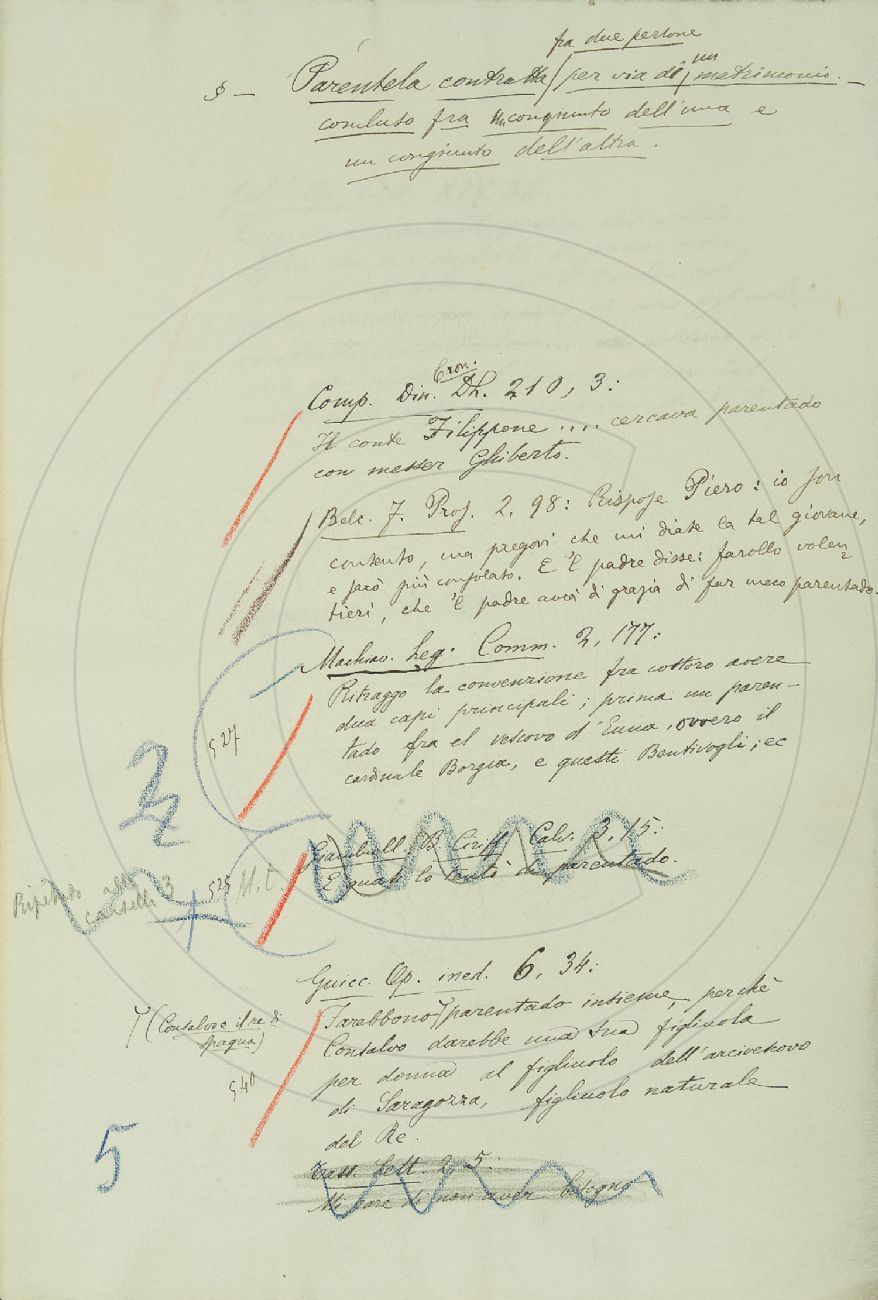 fra due persone
§ — Parentela contratta / per via di un matrimonio. —
concluso fra un congiunto dell'una e
un congiunto dell'altra.
Cron:
Comp. Din. 210, 3:
Il conte Filippone .... cercava parentado
con messer Ghiberto.
Belc. F. Pros. 2. 98: Rispose Piero: io son
contento, ma pregovi che mi diate la tal giovane,
e sarò più consolato. E 'l padre disse: farollo volen
tieri, che 'l padre avrà di grazia di far meco parentado.
Machiav. Leg. Comm. 2, 177:
Ritraggo la convenzione fra costoro avere
dua capi principali; prima un paren-
tado fra el vescovo d'Enna, ovvero il
cardinale Borgia, e questi Bentivogli; ec
§ 27
2
Giambull. B. Ciriff. Calv. 3, 15:
E quasi lo tentò di parentado.
Ripetuto alla
cartella 3
§ 25
M.t.
Guicc. Op. ined. 6, 34:
Farebbono parentado insieme, perchè
(Consalvo e il re di
Spagna)
Consalvo darebbe una sua figliuola
per donna al figliuolo dell'arcivescovo
di Saragozza, figliuolo naturale
§ 40
del Re.
5
Tass. Lett. 2, 5:
Mi pare di non aver bisogno